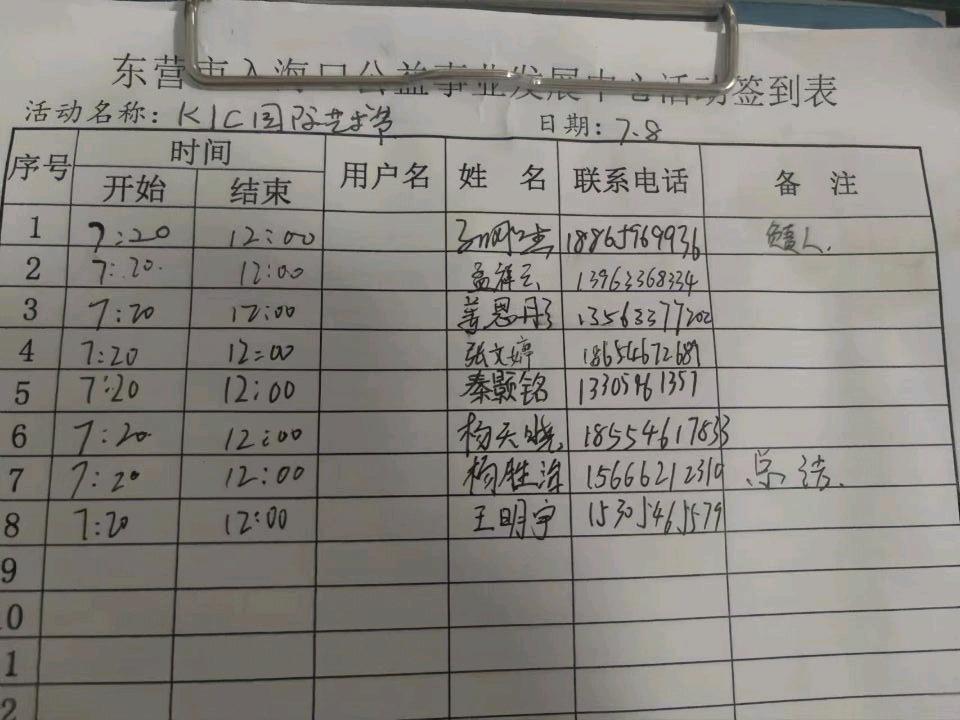 东营市入海口公益事业发展中心活动签到表
活动名称：KIC国际艺术节 日期：7.8
序号 时间 用户名 姓 名 联系电话 备 注
开始 结束
1 7:20 12:00 18865969936
2 7:20. 12:00 孟祥云 13963368334
3 7:20 12:00 姜恩彤 13563377202
4 7:20 12:00 张文婷 18654672689
5 7:20 12:00 秦颢铭 13305461357
6 7:20 12:00 杨天晓 18554617833
7 7:20 12:00 杨胜海 15666212310 总结.
8 7:20 12:00 王明宇 15305465579
9
10
1
2